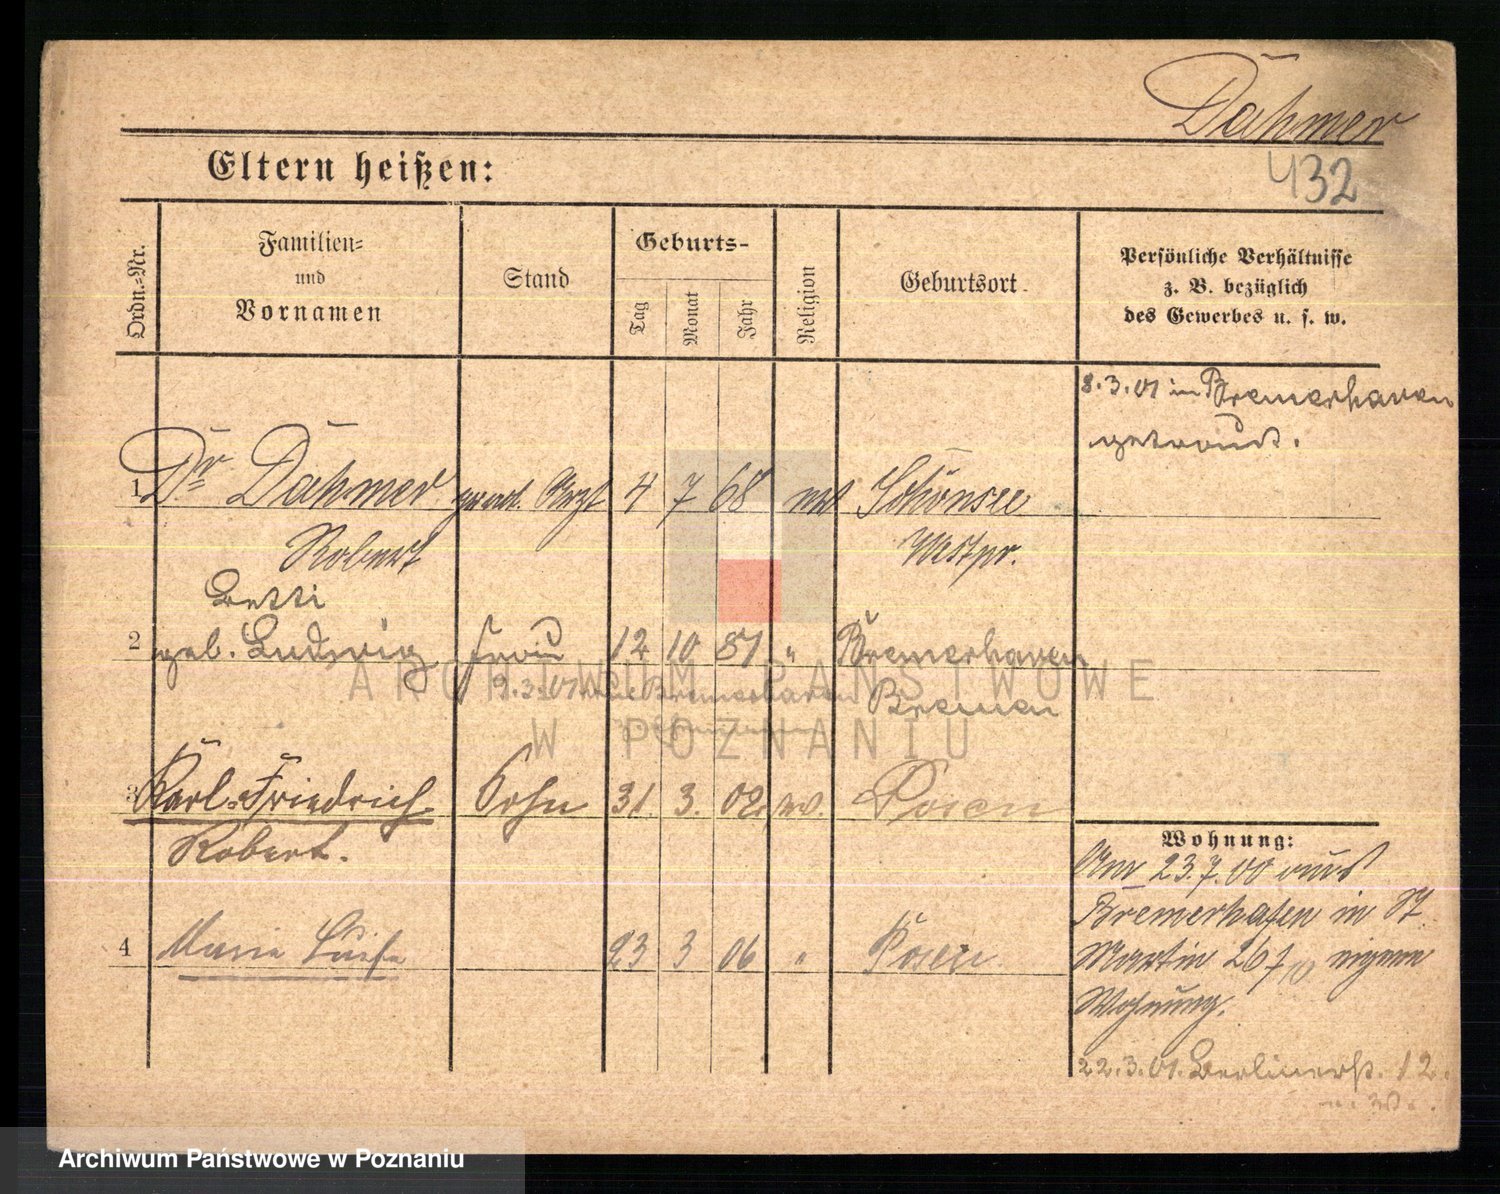 Dahmer
432
Eltern heißen:
Ordn.-Nr.
Familien-
und
Vornamen
Stand
Geburts-
Tag
Monat
Jahr
Religion
Geburtsort
Persönliche Verhältnisse
z. B. bezüglich
des Gewerbes u. s. w.
8.3.01 in Bremerhaven
getraut.
1 Dr Dahmer pract. Arzt 4 7 68 Schönsee
Robert Westpr.
Betti
2 geb. Ludwig Frau 12 10 87 " Bremerhaven
9.3.01 Bremerhaven Bremen
3 Karl-Friedrich Sohn 31. 3. 02 ev. Posen
Robert.
4 Marie Luise 23 3 06 " Posen
Wohnung:
Am 23.7.00 aus
Bremerhafen in St
Martin 26 eigene
Wohnung.
22.3.01. Berlinerstr. 12.
ARCHIWUM PAŃSTWOWE
W POZNANIU
Archiwum Państwowe w Poznaniu